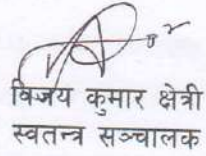 विजय कुमार क्षेत्री
स्वतन्त्र सञ्चालक